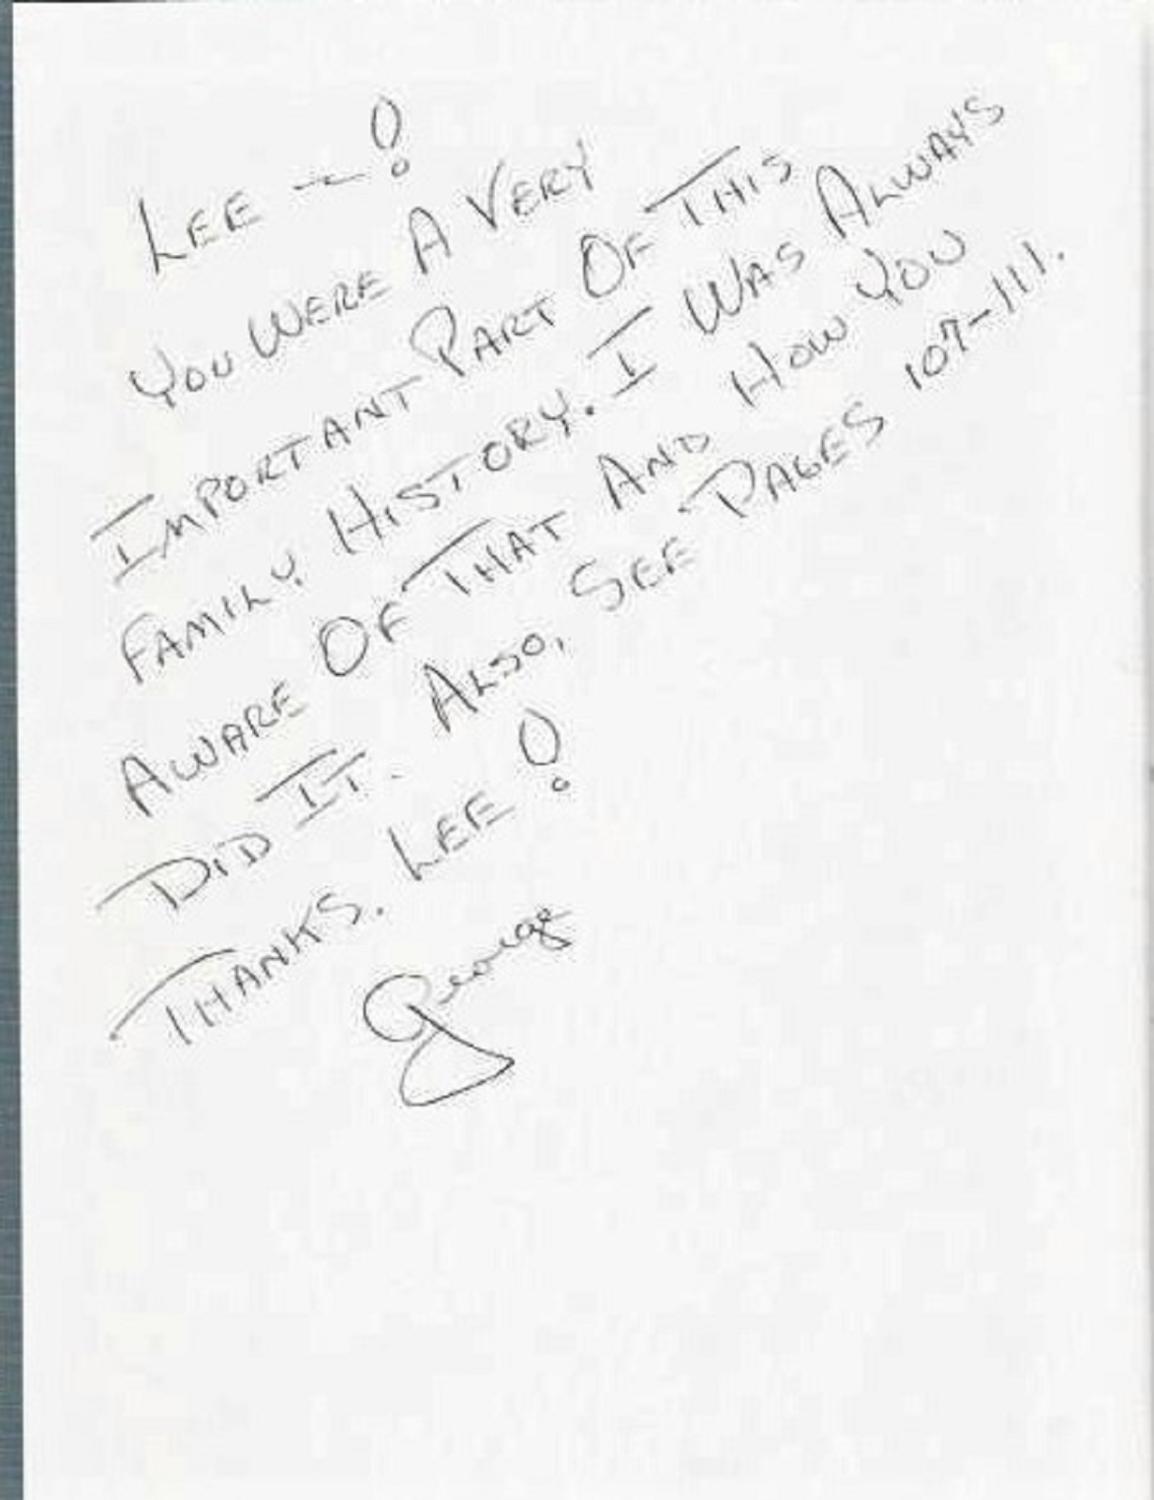 LEE ~!
YOU WERE A VERY
IMPORTANT PART OF THIS
FAMILY HISTORY. I WAS ALWAYS
AWARE OF THAT AND HOW YOU
DID IT. ALSO, SEE PAGES 107-111.
THANKS. LEE!
George